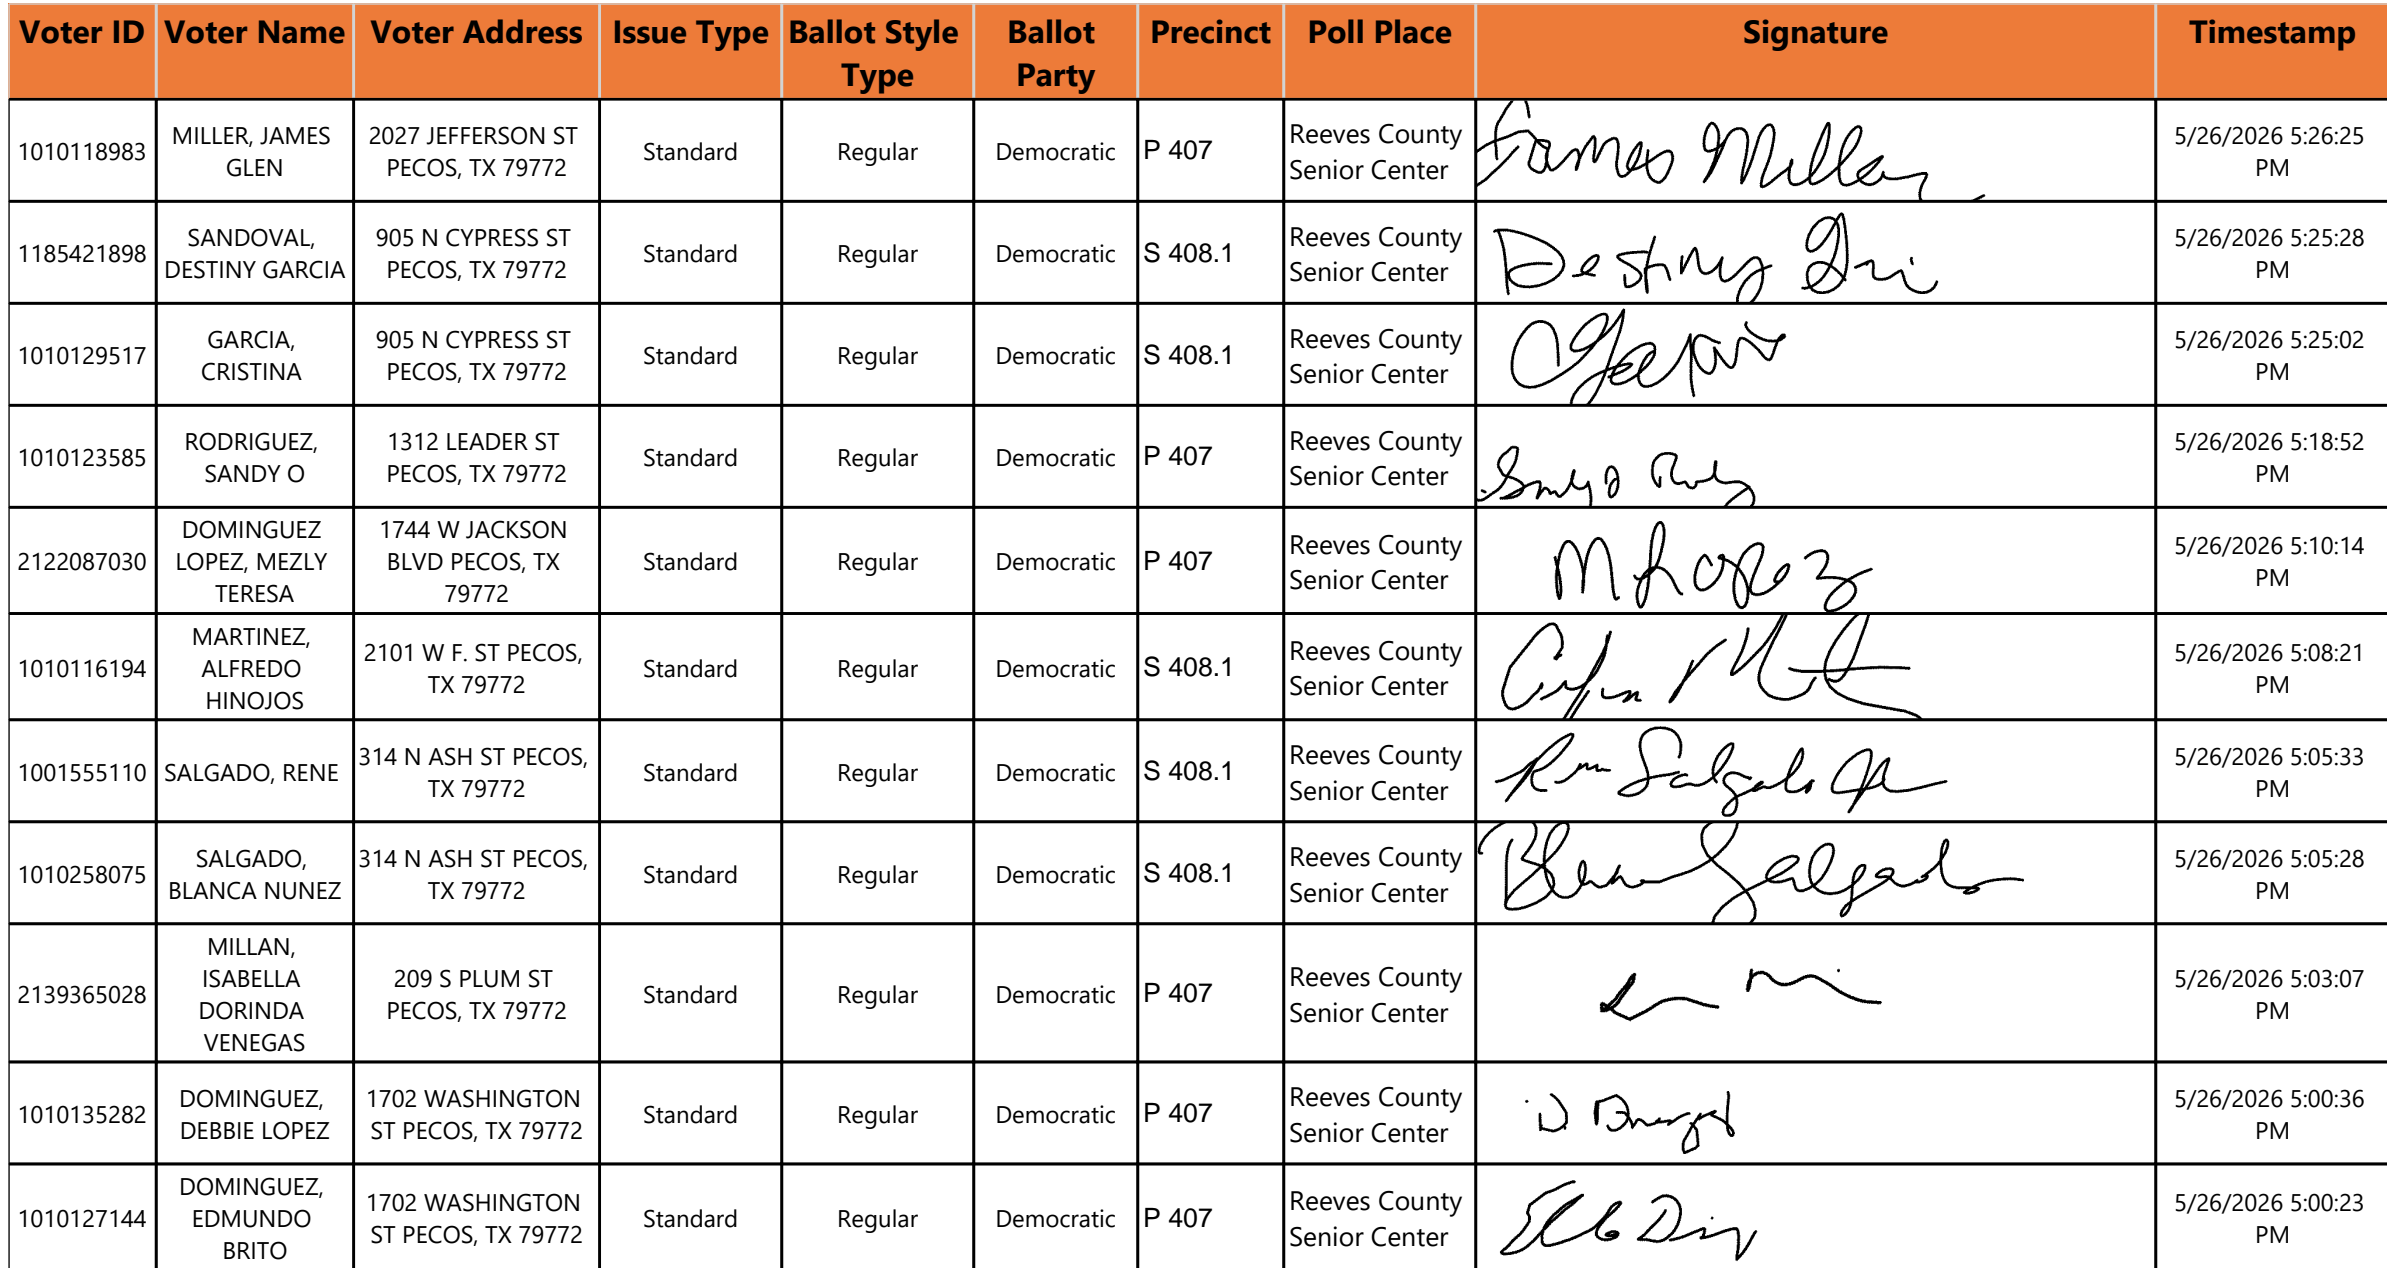 Voter ID Voter Name Voter Address Issue Type Ballot Style Type Ballot Party Precinct Poll Place Signature Timestamp
1010118983 MILLER, JAMES GLEN 2027 JEFFERSON ST PECOS, TX 79772 Standard Regular Democratic P 407 Reeves County Senior Center James Miller 5/26/2026 5:26:25 PM
1185421898 SANDOVAL, DESTINY GARCIA 905 N CYPRESS ST PECOS, TX 79772 Standard Regular Democratic S 408.1 Reeves County Senior Center Destiny 5/26/2026 5:25:28 PM
1010129517 GARCIA, CRISTINA 905 N CYPRESS ST PECOS, TX 79772 Standard Regular Democratic S 408.1 Reeves County Senior Center 5/26/2026 5:25:02 PM
1010123585 RODRIGUEZ, SANDY O 1312 LEADER ST PECOS, TX 79772 Standard Regular Democratic P 407 Reeves County Senior Center 5/26/2026 5:18:52 PM
2122087030 DOMINGUEZ LOPEZ, MEZLY TERESA 1744 W JACKSON BLVD PECOS, TX 79772 Standard Regular Democratic P 407 Reeves County Senior Center M Lopez 5/26/2026 5:10:14 PM
1010116194 MARTINEZ, ALFREDO HINOJOS 2101 W F. ST PECOS, TX 79772 Standard Regular Democratic S 408.1 Reeves County Senior Center 5/26/2026 5:08:21 PM
1001555110 SALGADO, RENE 314 N ASH ST PECOS, TX 79772 Standard Regular Democratic S 408.1 Reeves County Senior Center Salgado Jr 5/26/2026 5:05:33 PM
1010258075 SALGADO, BLANCA NUNEZ 314 N ASH ST PECOS, TX 79772 Standard Regular Democratic S 408.1 Reeves County Senior Center Salgado 5/26/2026 5:05:28 PM
2139365028 MILLAN, ISABELLA DORINDA VENEGAS 209 S PLUM ST PECOS, TX 79772 Standard Regular Democratic P 407 Reeves County Senior Center 5/26/2026 5:03:07 PM
1010135282 DOMINGUEZ, DEBBIE LOPEZ 1702 WASHINGTON ST PECOS, TX 79772 Standard Regular Democratic P 407 Reeves County Senior Center 5/26/2026 5:00:36 PM
1010127144 DOMINGUEZ, EDMUNDO BRITO 1702 WASHINGTON ST PECOS, TX 79772 Standard Regular Democratic P 407 Reeves County Senior Center 5/26/2026 5:00:23 PM